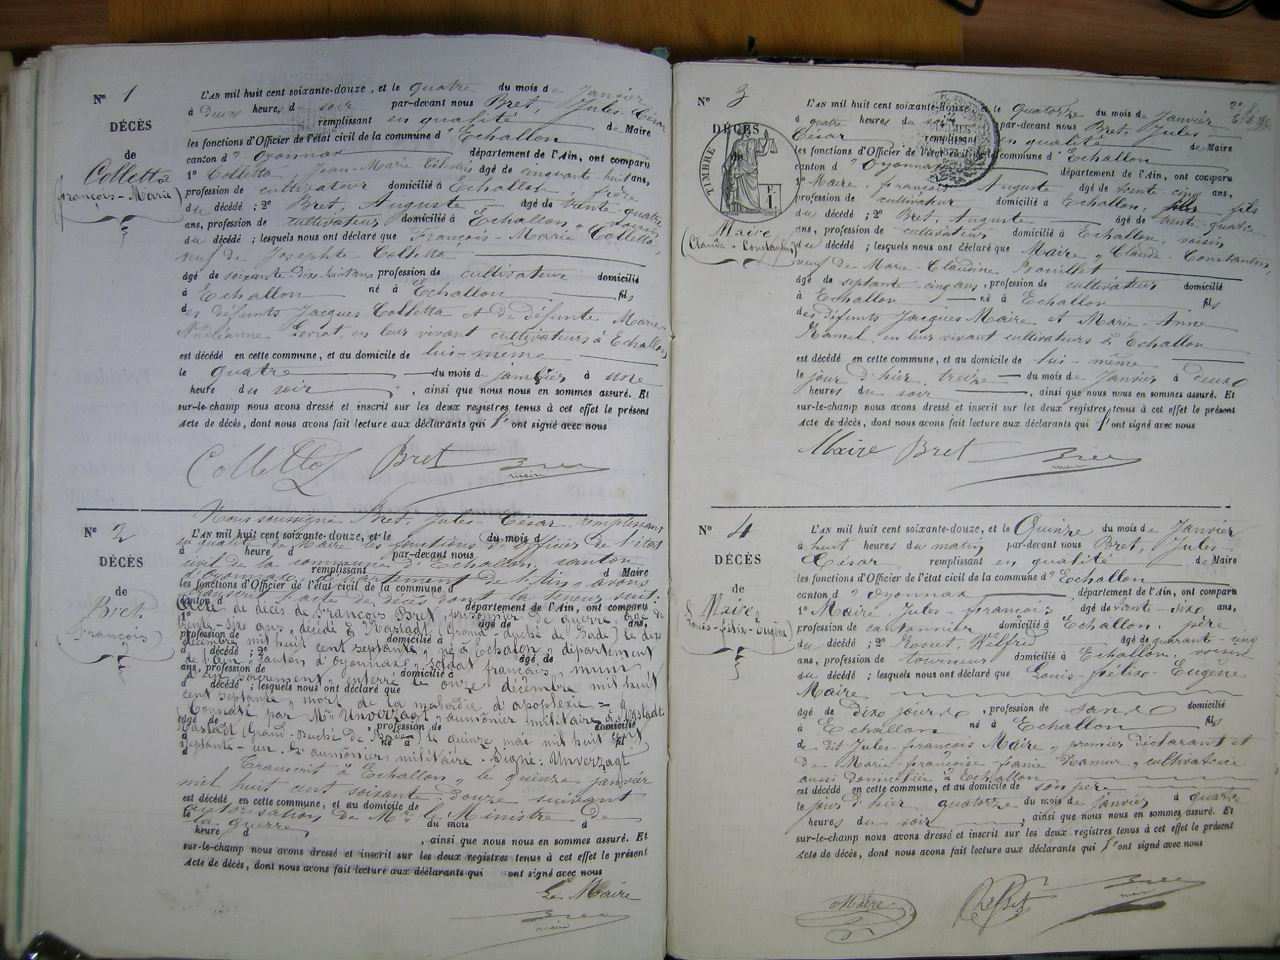 N° 1
DÉCÈS
de
Colletta
François-Marie
L'AN mil huit cent soixante-douze, et le quatre du mois de Janvier
à deux heures, du soir par-devant nous Bret, Jules César
remplissant en qualité de Maire
les fonctions d'Officier de l'état civil de la commune d'Echallon
canton d'Oyonnax département de l'Ain, ont comparu
1° Colletta Jean-Marie âgé de cinquante huit ans,
profession de cultivateur domicilié à Echallon
du décédé ; 2° Bret, Auguste âgé de trente quatre
ans, profession de cultivateur domicilié à Echallon, voisin
du décédé ; lesquels nous ont déclaré que François-Marie Colletta
veuf de Josephte Colletta
âgé de soixante dix huit ans profession de cultivateur domicilié
à Echallon né à Echallon fils
des défunts Jacques Colletta et de défunte Marie
en leur vivant cultivateurs à Echallon
est décédé en cette commune, et au domicile de lui-même
le quatre du mois de janvier à une
heure du soir, ainsi que nous nous en sommes assuré. Et
sur-le-champ nous avons dressé et inscrit sur les deux registres tenus à cet effet le présent
Acte de décès, dont nous avons fait lecture aux déclarants qui l'ont signé avec nous
Colletta Bret Bret
maire
N° 2
DÉCÈS
de
Bret
François
Nous soussigné Bret, Jules César remplissant
L'AN mil huit cent soixante-douze, et le du mois d
en qualité de Maire les fonctions d'officier de l'état
à heure d par-devant nous
civil de la commune d'Echallon, canton
remplissant d Maire
d'Oyonnax département de l'Ain, avons
les fonctions d'Officier de l'état civil de la commune d
transcrit l'acte de décès dont la teneur suit:
canton d département de l'Ain, ont comparu
Acte de décès de François Bret, prisonnier de guerre, âgé de
1° âgé de ans,
trente-six ans, décédé à Rastadt (Grand-duché de Bade) le dix
profession de domicilié à
décembre mil huit cent septante, né à Echalon, département
du décédé ; 2° âgé de
de l'Ain, canton d'Oyonnax, soldat français, muni
ans, profession de domicilié à
enterré le onze décembre mil huit
d décédé ; lesquels nous ont déclaré que
cent septante, mort de la maladie d'apoplexie
par Mr Unverzagt, aumônier militaire à Rastadt
âgé de profession de domicilié
Rastadt (Grand-duché de Bade) le quinze mai mil huit cent
à né à fil
septante-un. L'aumônier militaire. Signé: Unverzagt
Transcrit à Echallon, le quinze janvier
mil huit cent soixante douze suivant
est décédé en cette commune, et au domicile de
autorisation de Mr le Ministre de
le du mois d à
la guerre
heure d, ainsi que nous nous en sommes assuré. Et
sur-le-champ nous avons dressé et inscrit sur les deux registres tenus à cet effet le présent
Acte de décès, dont nous avons fait lecture aux déclarants qui ont signé avec nous
Le Maire
Bret
maire
N° 3
DÉCÈS
TIMBRE
1 F.
Maire
Claude-Constantin
L'AN mil huit cent soixante-douze, et le quatorze du mois de Janvier
à quatre heures du soir par-devant nous Bret, Jules-
César remplissant en qualité de Maire
les fonctions d'Officier de l'état civil de la commune d'Echallon
canton d'Oyonnax département de l'Ain, ont comparu
1° Maire, François Auguste âgé de trente cinq ans,
profession de cultivateur domicilié à Echallon, fils
du décédé ; 2° Bret, Auguste âgé de trente-quatre
ans, profession de cultivateur domicilié à Echallon, voisin
du décédé ; lesquels nous ont déclaré que Maire, Claude-Constantin,
veuf de Marie-Claudine
âgé de septante-cinq ans, profession de cultivateur domicilié
à Echallon né à Echallon fils
des défunts Jacques Maire et Marie-Anne
Hamel, en leur vivant cultivateurs à Echallon
est décédé en cette commune, et au domicile de lui-même
le jour d'hier, treize du mois de Janvier à deux
heures du soir, ainsi que nous nous en sommes assuré. Et
sur-le-champ nous avons dressé et inscrit sur les deux registres tenus à cet effet le présent
Acte de décès, dont nous avons fait lecture aux déclarants qui l'ont signé avec nous
Maire Bret Bret
maire
N° 4
DÉCÈS
de
Maire
Louis-Félix-Eugène
L'AN mil huit cent soixante-douze, et le Quinze du mois de Janvier
à huit heures du matin par-devant nous Bret, Jules-
César remplissant en qualité de Maire
les fonctions d'Officier de l'état civil de la commune d'Echallon
canton d'Oyonnax département de l'Ain, ont comparu
1° Maire Jules-François âgé de trente-six ans,
profession de cantonnier domicilié à Echallon, père
du décédé ; 2° Rosset, Wilfrid âgé de quarante-cinq
ans, profession de tourneur domicilié à Echallon, voisin
du décédé ; lesquels nous ont déclaré que Louis-Félix-Eugène
Maire
âgé de dix jours, profession de sans domicilié
à Echallon né à Echallon fils
de dit Jules-François Maire, premier déclarant et
de Marie-Françoise- Hamer, cultivatrice
aussi domiciliée à Echallon
est décédé en cette commune, et au domicile de son père
le jour d'hier quatorze du mois de janvier à quatre
heures du soir, ainsi que nous nous en sommes assuré. Et
sur-le-champ nous avons dressé et inscrit sur les deux registres tenus à cet effet le présent
Acte de décès, dont nous avons fait lecture aux déclarants qui l'ont signé avec nous
Maire Bret
maire